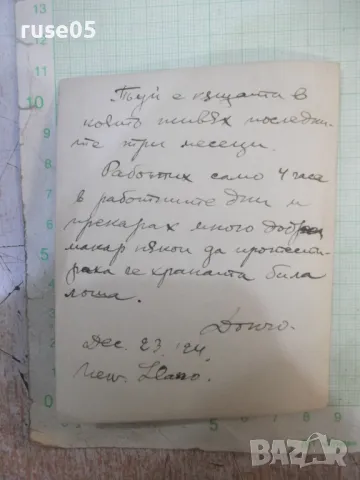 ruse05
Туй е къщата в
която живях последни-
те три месеци.
Работих само 4 часа
в работните дни и
прекарах много добре
макар някои да протести-
раха че храната била
лоша.
Дончо.
Dec. 23, '24
New Llano.
bazar
БАЗАР